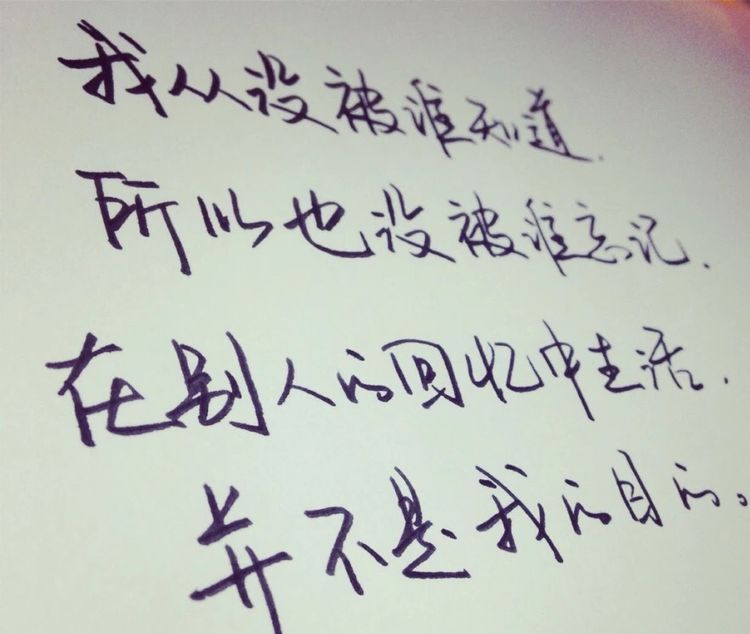 我从没被谁知道.
所以也没被谁忘记.
在别人的回忆中生活.
并不是我的目的。